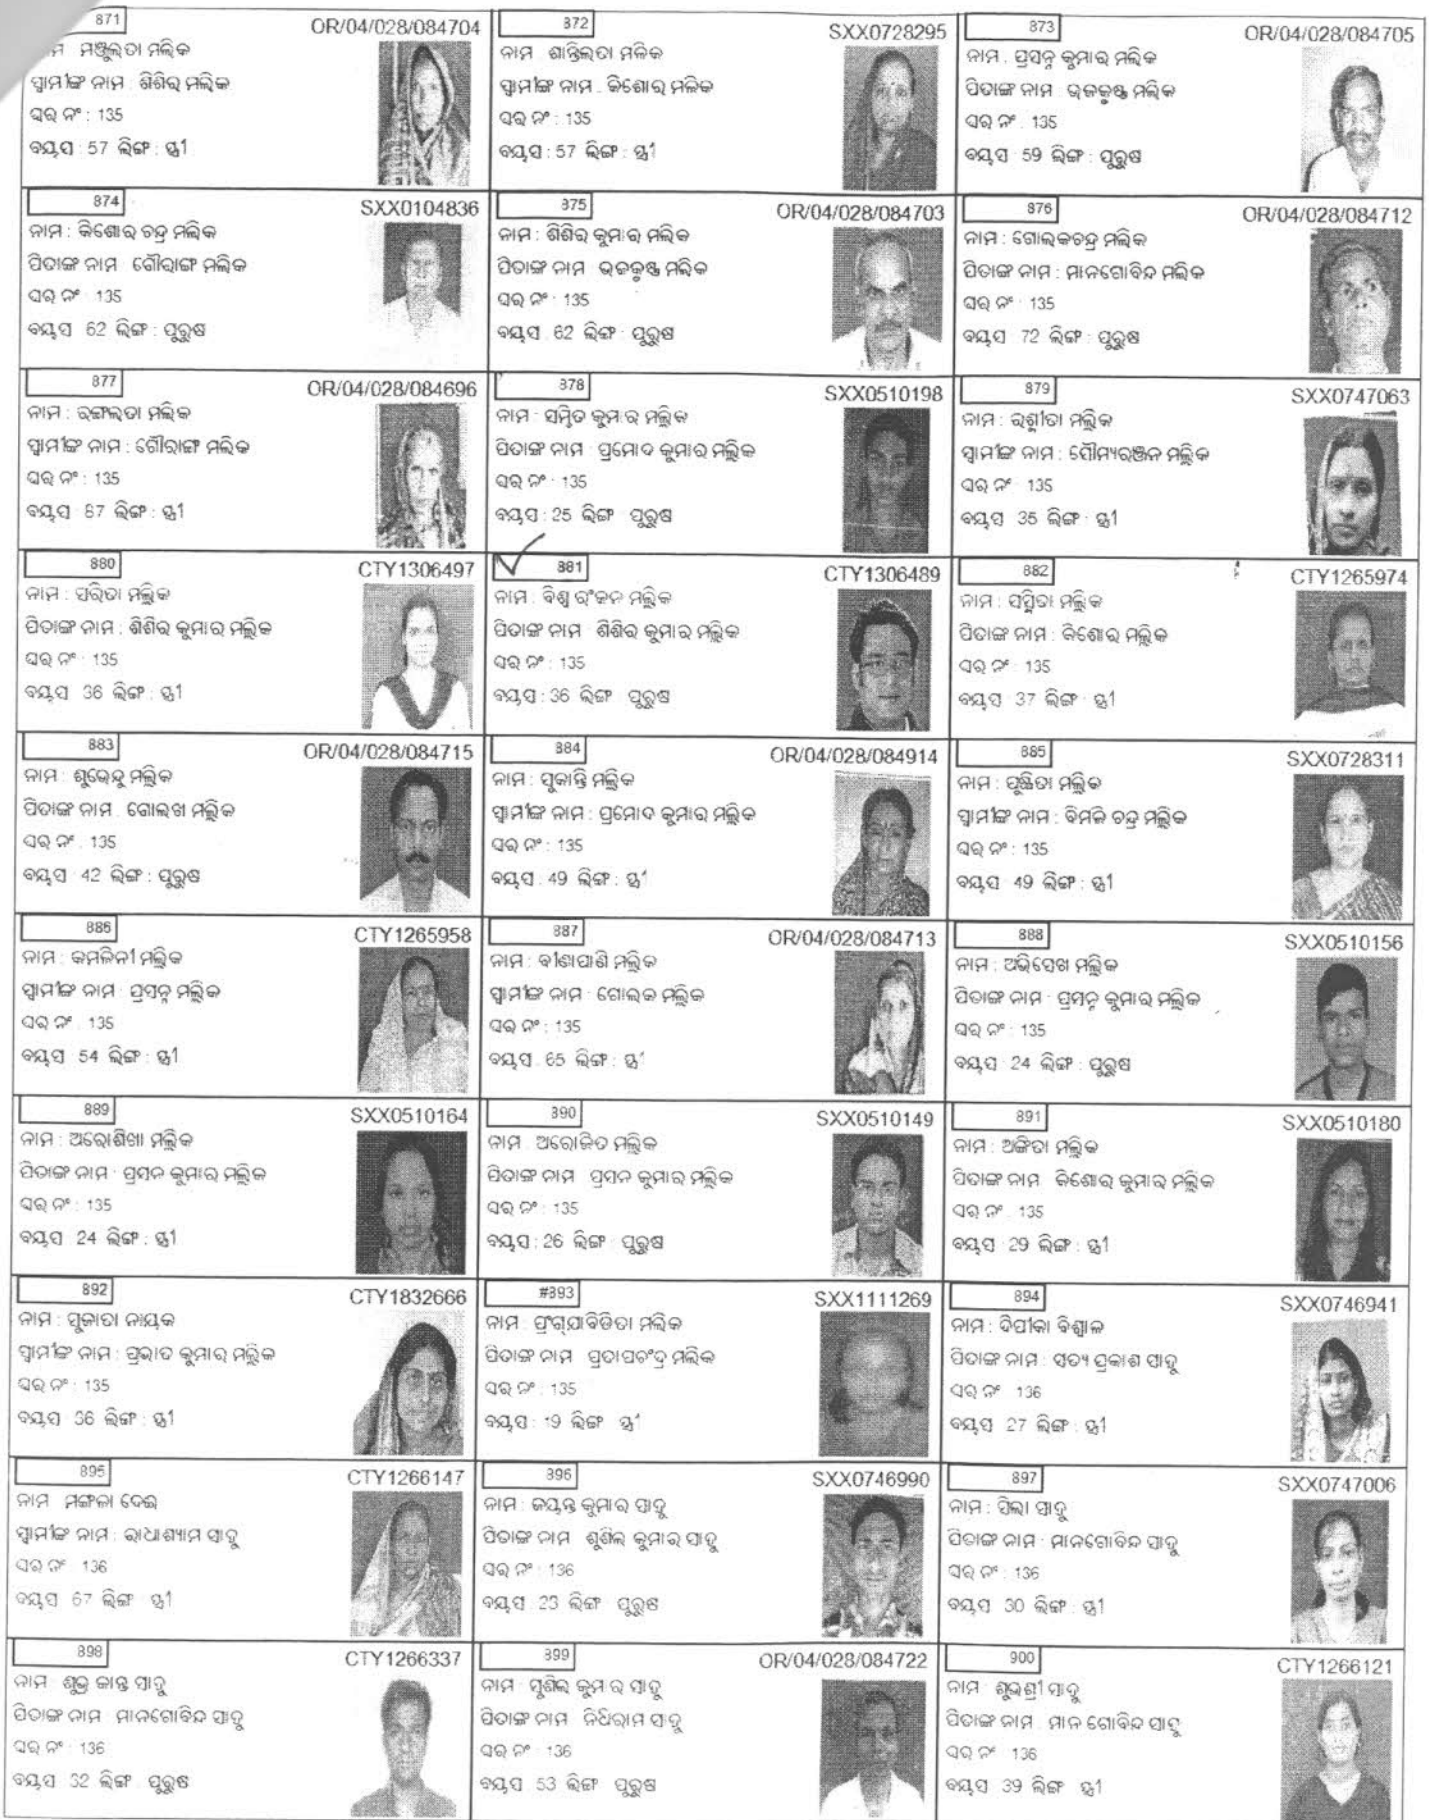 871 OR/04/028/084704
ନାମ ମଞ୍ଜୁଲତା ମଲ୍ଲିକ
ସ୍ୱାମୀଙ୍କ ନାମ : ଶିଶିର ମଲ୍ଲିକ
ଘର ନଂ : 135
ବୟସ : 57 ଲିଙ୍ଗ : ସ୍ତ୍ରୀ
872 SXX0728295
ନାମ : ଶାନ୍ତିଲତା ମଳିକ
ସ୍ୱାମୀଙ୍କ ନାମ : କିଶୋର ମଳିକ
ଘର ନଂ : 135
ବୟସ : 57 ଲିଙ୍ଗ : ସ୍ତ୍ରୀ
873 OR/04/028/084705
ନାମ : ପ୍ରସନ୍ନ କୁମାର ମଲ୍ଲିକ
ପିତାଙ୍କ ନାମ : ଭଜକୃଷ୍ଣ ମଲ୍ଲିକ
ଘର ନଂ : 135
ବୟସ : 59 ଲିଙ୍ଗ : ପୁରୁଷ
874 SXX0104836
ନାମ : କିଶୋର ଚନ୍ଦ୍ର ମଲ୍ଲିକ
ପିତାଙ୍କ ନାମ ଗୌରାଙ୍ଗ ମଲ୍ଲିକ
ଘର ନଂ : 135
ବୟସ 62 ଲିଙ୍ଗ : ପୁରୁଷ
875 OR/04/028/084703
ନାମ : ଶିଶିର କୁମାର ମଲ୍ଲିକ
ପିତାଙ୍କ ନାମ ଭଜକୃଷ୍ଣ ମଲ୍ଲିକ
ଘର ନଂ : 135
ବୟସ : 62 ଲିଙ୍ଗ : ପୁରୁଷ
876 OR/04/028/084712
ନାମ : ଗୋଲକଚନ୍ଦ୍ର ମଲ୍ଲିକ
ପିତାଙ୍କ ନାମ : ମାନଗୋବିନ୍ଦ ମଲ୍ଲିକ
ଘର ନଂ : 135
ବୟସ : 72 ଲିଙ୍ଗ : ପୁରୁଷ
877 OR/04/028/084696
ନାମ : ରଙ୍ଗଲତା ମଲ୍ଲିକ
ସ୍ୱାମୀଙ୍କ ନାମ : ଗୌରାଙ୍ଗ ମଲ୍ଲିକ
ଘର ନଂ : 135
ବୟସ : 87 ଲିଙ୍ଗ : ସ୍ତ୍ରୀ
878 SXX0510198
ନାମ : ସମ୍ବିତ କୁମାର ମଲ୍ଲିକ
ପିତାଙ୍କ ନାମ : ପ୍ରମୋଦ କୁମାର ମଲ୍ଲିକ
ଘର ନଂ : 135
ବୟସ : 25 ଲିଙ୍ଗ : ପୁରୁଷ
879 SXX0747063
ନାମ : ରଶ୍ମୀତା ମଲ୍ଲିକ
ସ୍ୱାମୀଙ୍କ ନାମ : ସୌମ୍ୟରଞ୍ଜନ ମଲ୍ଲିକ
ଘର ନଂ 135
ବୟସ 35 ଲିଙ୍ଗ : ସ୍ତ୍ରୀ
880 CTY1306497
ନାମ : ସରିତା ମଲ୍ଲିକ
ପିତାଙ୍କ ନାମ : ଶିଶିର କୁମାର ମଲ୍ଲିକ
ଘର ନଂ : 135
ବୟସ 36 ଲିଙ୍ଗ : ସ୍ତ୍ରୀ
881 CTY1306489
ନାମ : ବିଶ୍ୱ ରଂଜନ ମଲ୍ଲିକ
ପିତାଙ୍କ ନାମ ଶିଶିର କୁମାର ମଲ୍ଲିକ
ଘର ନଂ : 135
ବୟସ : 36 ଲିଙ୍ଗ ପୁରୁଷ
882 CTY1265974
ନାମ : ସସ୍ମିତା ମଲ୍ଲିକ
ପିତାଙ୍କ ନାମ : କିଶୋର ମଲ୍ଲିକ
ଘର ନଂ : 135
ବୟସ : 37 ଲିଙ୍ଗ : ସ୍ତ୍ରୀ
883 OR/04/028/084715
ନାମ : ଶୁଭେନ୍ଦୁ ମଲ୍ଲିକ
ପିତାଙ୍କ ନାମ : ଗୋଲଖ ମଲ୍ଲିକ
ଘର ନଂ : 135
ବୟସ : 42 ଲିଙ୍ଗ : ପୁରୁଷ
884 OR/04/028/084914
ନାମ : ସୁକାନ୍ତି ମଲ୍ଲିକ
ସ୍ୱାମୀଙ୍କ ନାମ : ପ୍ରମୋଦ କୁମାର ମଲ୍ଲିକ
ଘର ନଂ : 135
ବୟସ : 49 ଲିଙ୍ଗ : ସ୍ତ୍ରୀ
885 SXX0728311
ନାମ : ମଲ୍ଲିକ
ସ୍ୱାମୀଙ୍କ ନାମ : ବିମଳ ଚନ୍ଦ୍ର ମଲ୍ଲିକ
ଘର ନଂ : 135
ବୟସ : 49 ଲିଙ୍ଗ : ସ୍ତ୍ରୀ
886 CTY1265958
ନାମ : କମଳିନୀ ମଲ୍ଲିକ
ସ୍ୱାମୀଙ୍କ ନାମ : ପ୍ରସନ୍ନ ମଲ୍ଲିକ
ଘର ନଂ : 135
ବୟସ 54 ଲିଙ୍ଗ : ସ୍ତ୍ରୀ
887 OR/04/028/084713
ନାମ : ବୀଣାପାଣି ମଲ୍ଲିକ
ସ୍ୱାମୀଙ୍କ ନାମ : ଗୋଲକ ମଲ୍ଲିକ
ଘର ନଂ : 135
ବୟସ : 65 ଲିଙ୍ଗ : ସ୍ତ୍ରୀ
888 SXX0510156
ନାମ : ଅଭିସେଖ ମଲ୍ଲିକ
ପିତାଙ୍କ ନାମ : ପ୍ରସନ୍ନ କୁମାର ମଲ୍ଲିକ
ଘର ନଂ : 135
ବୟସ : 24 ଲିଙ୍ଗ : ପୁରୁଷ
889 SXX0510164
ନାମ : ଅରୋଶିଖା ମଲ୍ଲିକ
ପିତାଙ୍କ ନାମ : ପ୍ରସନ କୁମାର ମଲ୍ଲିକ
ଘର ନଂ : 135
ବୟସ 24 ଲିଙ୍ଗ : ସ୍ତ୍ରୀ
890 SXX0510149
ନାମ : ଅରୋଜିତ ମଲ୍ଲିକ
ପିତାଙ୍କ ନାମ ପ୍ରସନ କୁମାର ମଲ୍ଲିକ
ଘର ନଂ : 135
ବୟସ : 26 ଲିଙ୍ଗ : ପୁରୁଷ
891 SXX0510180
ନାମ : ଅଙ୍କିତା ମଲ୍ଲିକ
ପିତାଙ୍କ ନାମ କିଶୋର କୁମାର ମଲ୍ଲିକ
ଘର ନଂ : 135
ବୟସ : 29 ଲିଙ୍ଗ : ସ୍ତ୍ରୀ
892 CTY1832666
ନାମ : ସୁଜାତା ନାୟକ
ସ୍ୱାମୀଙ୍କ ନାମ : ପ୍ରଭାତ କୁମାର ମଲ୍ଲିକ
ଘର ନଂ : 135
ବୟସ 36 ଲିଙ୍ଗ : ସ୍ତ୍ରୀ
#893 SXX1111269
ନାମ : ମଲ୍ଲିକ
ପିତାଙ୍କ ନାମ ପ୍ରତାପଚଂଦ୍ର ମଲ୍ଲିକ
ଘର ନଂ : 135
ବୟସ : 19 ଲିଙ୍ଗ ସ୍ତ୍ରୀ
894 SXX0746941
ନାମ : ଦିପୀକା ବିଶ୍ୱାଳ
ପିତାଙ୍କ ନାମ : ସତ୍ୟ ପ୍ରକାଶ ସାହୁ
ଘର ନଂ 136
ବୟସ 27 ଲିଙ୍ଗ : ସ୍ତ୍ରୀ
895 CTY1266147
ନାମ ମଙ୍ଗଳା ଦେଇ
ସ୍ୱାମୀଙ୍କ ନାମ : ରାଧାଶ୍ୟାମ ସାହୁ
ଘର ନଂ 136
ବୟସ 67 ଲିଙ୍ଗ ସ୍ତ୍ରୀ
896 SXX0746990
ନାମ : ଜୟନ୍ତ କୁମାର ସାହୁ
ପିତାଙ୍କ ନାମ ଶୁଶିଲ କୁମାର ସାହୁ
ଘର ନଂ : 136
ବୟସ : 23 ଲିଙ୍ଗ ପୁରୁଷ
897 SXX0747006
ନାମ : ସିଲା ସାହୁ
ପିତାଙ୍କ ନାମ : ମାନଗୋବିନ୍ଦ ସାହୁ
ଘର ନଂ : 136
ବୟସ 30 ଲିଙ୍ଗ : ସ୍ତ୍ରୀ
898 CTY1266337
ନାମ ଶୁଭ୍ର କାନ୍ତ ସାହୁ
ପିତାଙ୍କ ନାମ ମାନଗୋବିନ୍ଦ ସାହୁ
ଘର ନଂ : 136
ବୟସ 32 ଲିଙ୍ଗ ପୁରୁଷ
899 OR/04/028/084722
ନାମ : ସୁଶିଲ କୁମାର ସାହୁ
ପିତାଙ୍କ ନାମ ନିଧିରାମ ସାହୁ
ଘର ନଂ : 136
ବୟସ 53 ଲିଙ୍ଗ ପୁରୁଷ
900 CTY1266121
ନାମ : ଶୁଭଶ୍ରୀ ସାହୁ
ପିତାଙ୍କ ନାମ : ମାନ ଗୋବିନ୍ଦ ସାହୁ
ଘର ନଂ 136
ବୟସ : 39 ଲିଙ୍ଗ ସ୍ତ୍ରୀ